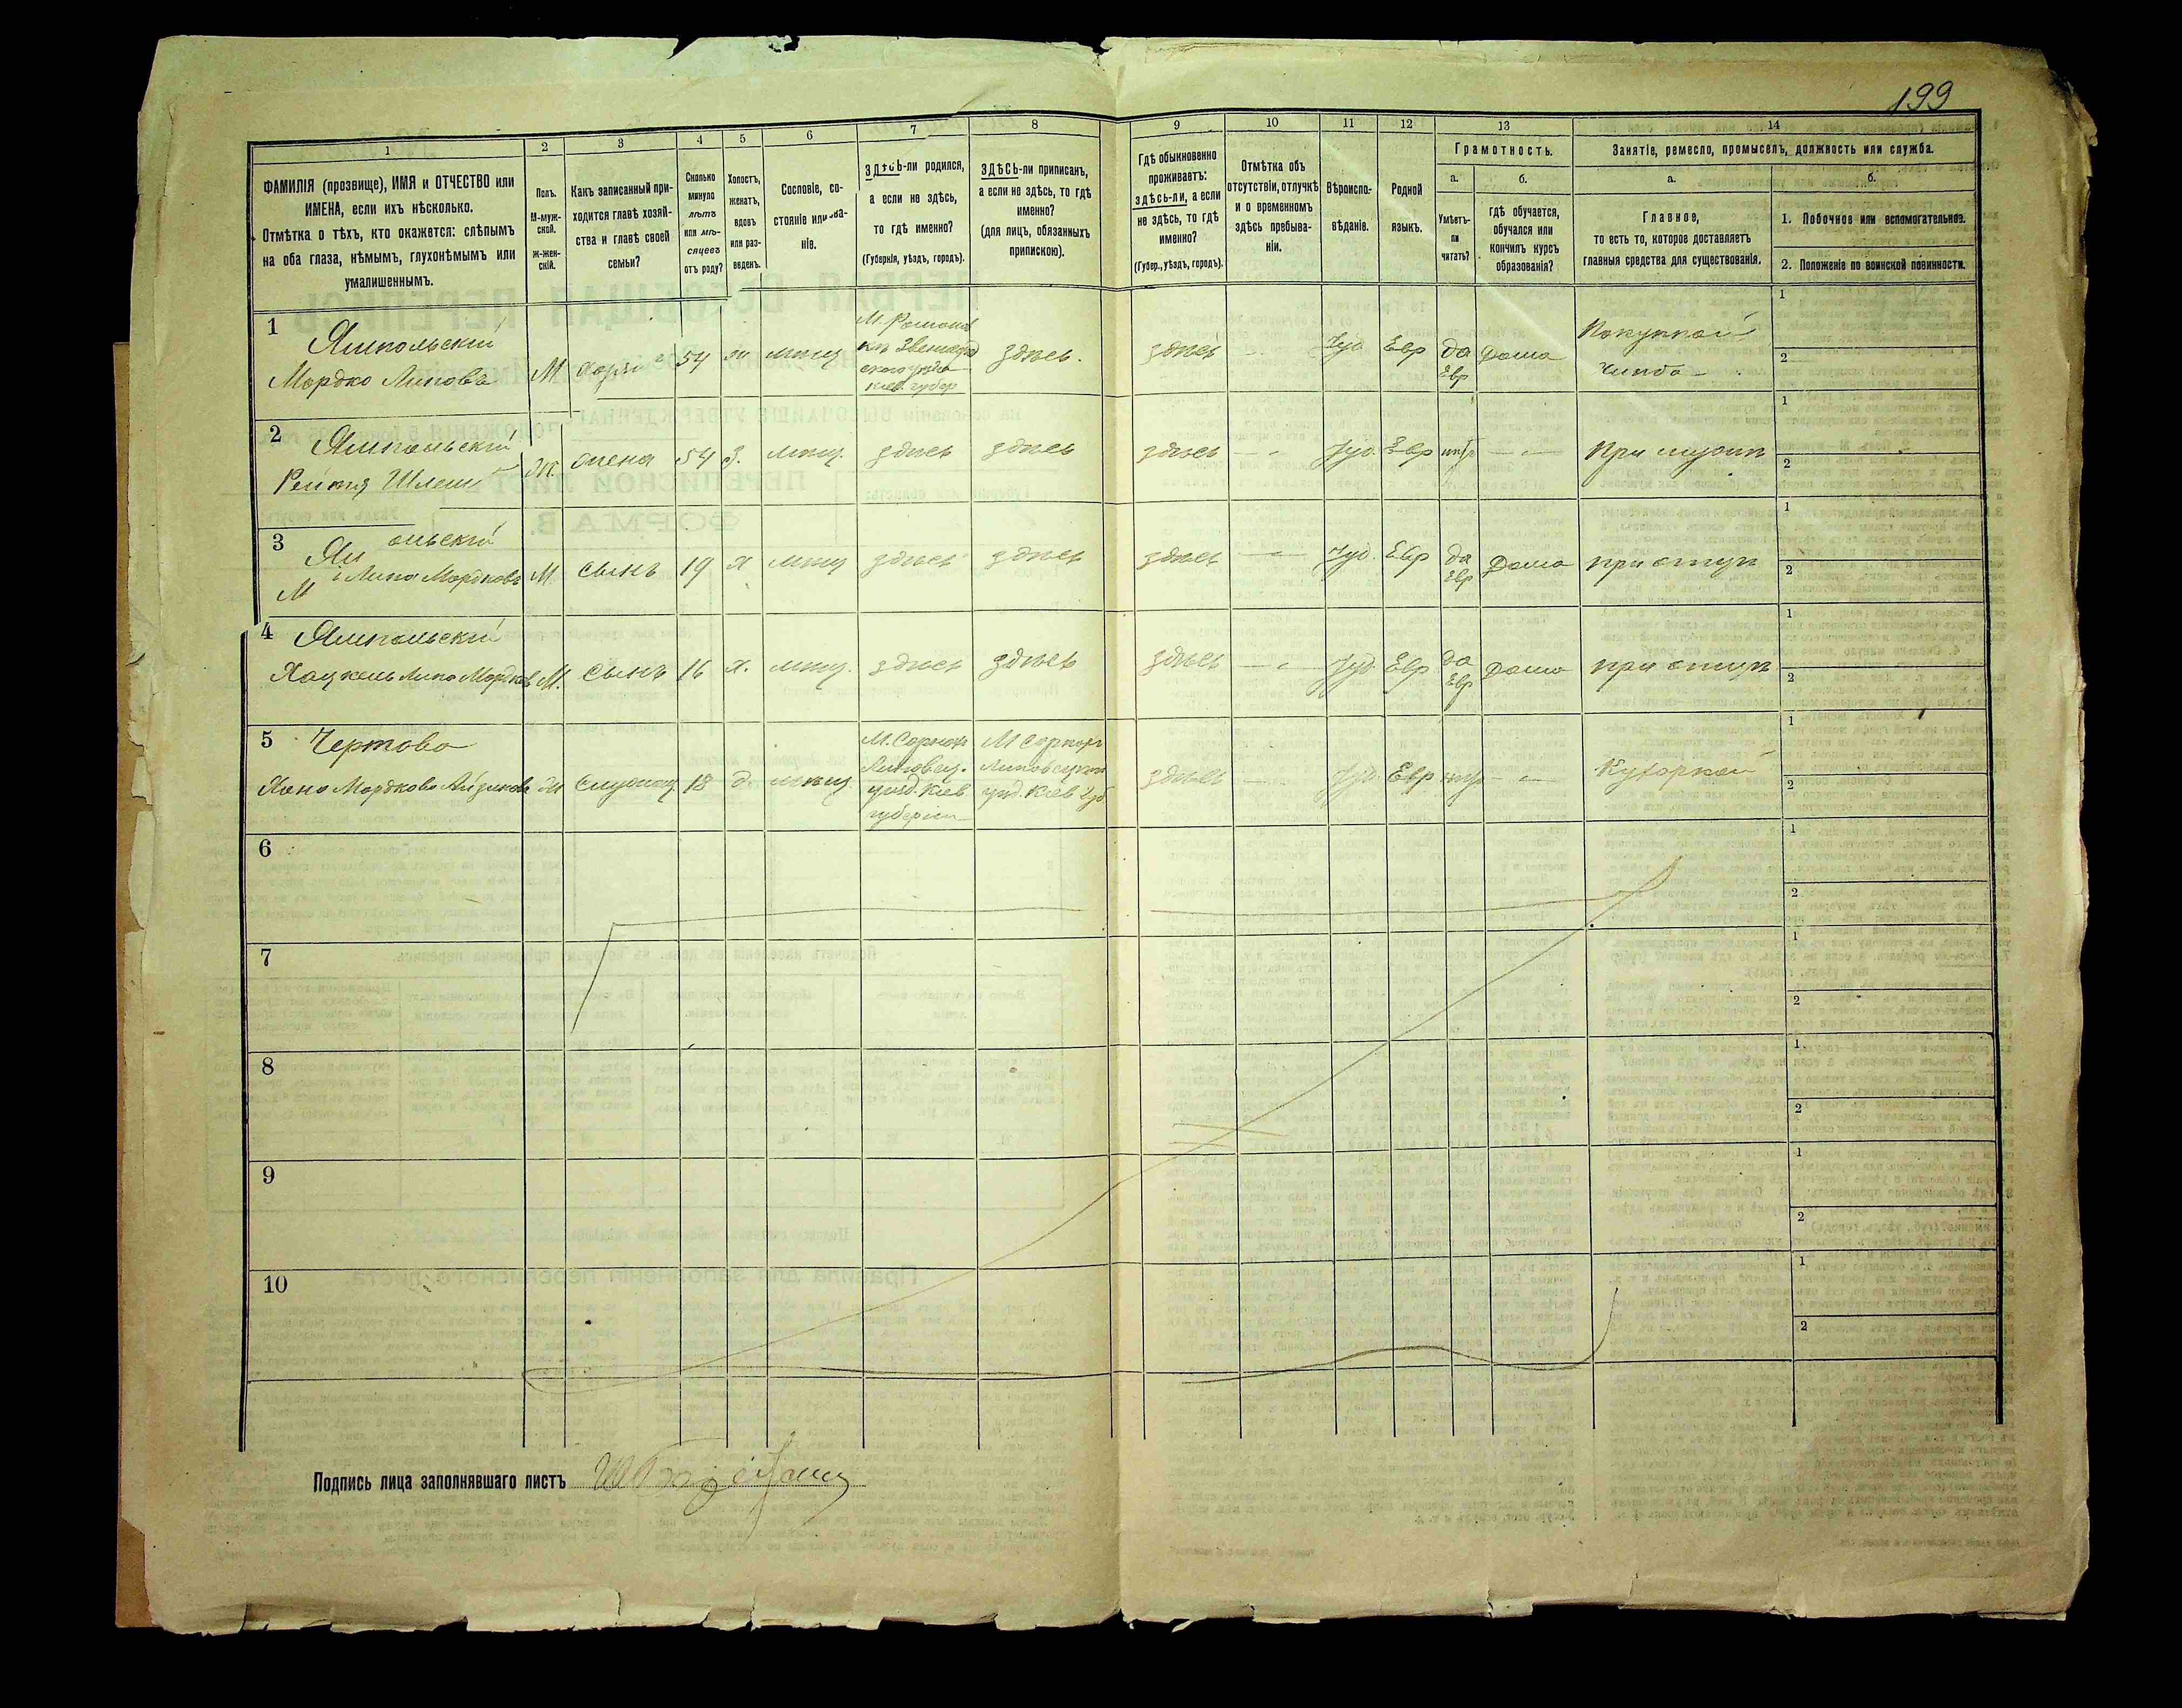 199
1
2
3
4
5
6
7
8
9
10
11
12
13
14
ФАМИЛІЯ (прозвище), ИМЯ и ОТЧЕСТВО или
ИМЕНА, если ихъ нѣсколько.
Отмѣтка о тѣхъ, кто окажется: слѣпымъ
на оба глаза, нѣмымъ, глухонѣмымъ или
умалишеннымъ.
Полъ.
М-муж-
ской.
ж-жен-
скій.
Какъ записанный при-
ходится главѣ хозяй-
ства и главѣ своей
семьи?
Сколько
минуло
лѣтъ
или мѣ-
сяцевъ
отъ роду?
Холостъ,
женатъ,
вдовъ
или раз-
веденъ.
Сословіе, со-
стояніе или зва-
ніе.
ЗДѢСЬ-ли родился,
а если не здѣсь,
то гдѣ именно?
(Губернія, уѣздъ, городъ).
ЗДѢСЬ-ли приписанъ,
а если не здѣсь, то гдѣ
именно?
(для лицъ, обязанныхъ
припискою).
Гдѣ обыкновенно
проживаетъ:
здѣсь-ли, а если
не здѣсь, то гдѣ
именно?
(Губер., уѣздъ, городъ).
Отмѣтка объ
отсутствіи, отлучкѣ
и о временномъ
здѣсь пребыва-
ніи.
Вѣроиспо-
вѣданіе.
Родной
языкъ.
Грамотность.
а.
Умѣетъ-
ли
читать?
б.
гдѣ обучается,
обучался или
кончилъ курсъ
образованія?
Занятіе, ремесло, промыселъ, должность или служба.
а.
Главное,
то есть то, которое доставляетъ
главныя средства для существованія.
б.
1. Побочное или вспомогательное.
2. Положеніе по воинской повинности.
1
Ямпольскій
Мордко Липовъ
М
54
ж
мѣщ
кіев губер
здѣсь.
здѣсь
Іуд
Евр
да
Евр
Дома
1
2
2
Ямпольскій
ж.
жена
54
З.
мѣщ.
здѣсь
здѣсь
здѣсь
Іуд.
Евр
При мужѣ
1
2
3
Ям ольскій
М Липа Мордковъ
М
Сынъ
19
х
мѣщ
здѣсь
здѣсь
здѣсь
Іуд.
Евр
да
Евр
Дома
при отцѣ
1
2
4
Ямпольскій
Хацкель Липо Мордков
М.
Сынъ
16
х.
мѣщ.
здѣсь
здѣсь
здѣсь
Іуд.
Евр
да
Евр
Дома
при отцѣ
1
2
5
Чертова
18
д
мѣщ
Липовец.
уѣзд. Кіев
губерніи
уѣзд. Кіев губ
здѣсь
Іуд.
Евр
Кухаркой
1
2
6
1
2
7
1
2
8
1
2
9
1
2
10
1
2
Подпись лица заполнявшаго листъ